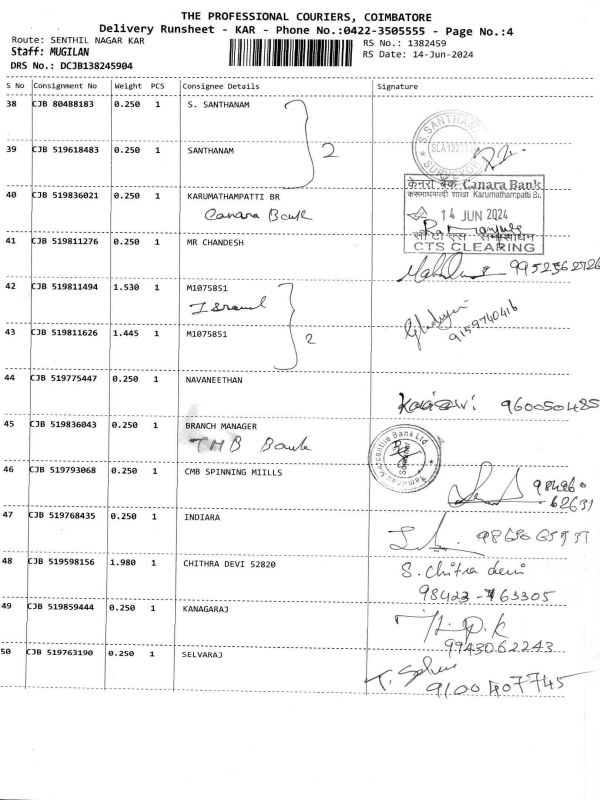 THE PROFESSIONAL COURIERS, COIMBATORE
Delivery Runsheet - KAR - Phone No.:0422-3505555 - Page No.:4
Route: SENTHIL NAGAR KAR
RS No.: 1382459
Staff: MUGILAN
RS Date: 14-Jun-2024
DRS No.: DCJB138245904
S No Consignment No Weight PCS Consignee Details Signature
38 CJB 80488183 0.250 1 S. SANTHANAM
S.SANTHANAM
SURVEYOR
2
39 CJB 519618483 0.250 1 SANTHANAM
40 CJB 519836021 0.250 1 KARUMATHAMPATTI BR
Canara Bank
केनरा बैंक Canara Bank
Karumathampatti Br.
14 JUN 2024
CTS CLEARING
41 CJB 519811276 0.250 1 MR CHANDESH
9952562726
42 CJB 519811494 1.530 1 M1075851
Isravel
2
9159740416
43 CJB 519811626 1.445 1 M1075851
44 CJB 519775447 0.250 1 NAVANEETHAN
9600504485
45 CJB 519836043 0.250 1 BRANCH MANAGER
TMB Bank
Tamilnad Mercantile Bank Ltd
46 CJB 519793068 0.250 1 CMB SPINNING MIILLS
47 CJB 519768435 0.250 1 INDIARA
48 CJB 519598156 1.980 1 CHITHRA DEVI 52820
S. Chitra devi
98423-63305
49 CJB 519859444 0.250 1 KANAGARAJ
9943062243
50 CJB 519763190 0.250 1 SELVARAJ
9100407745